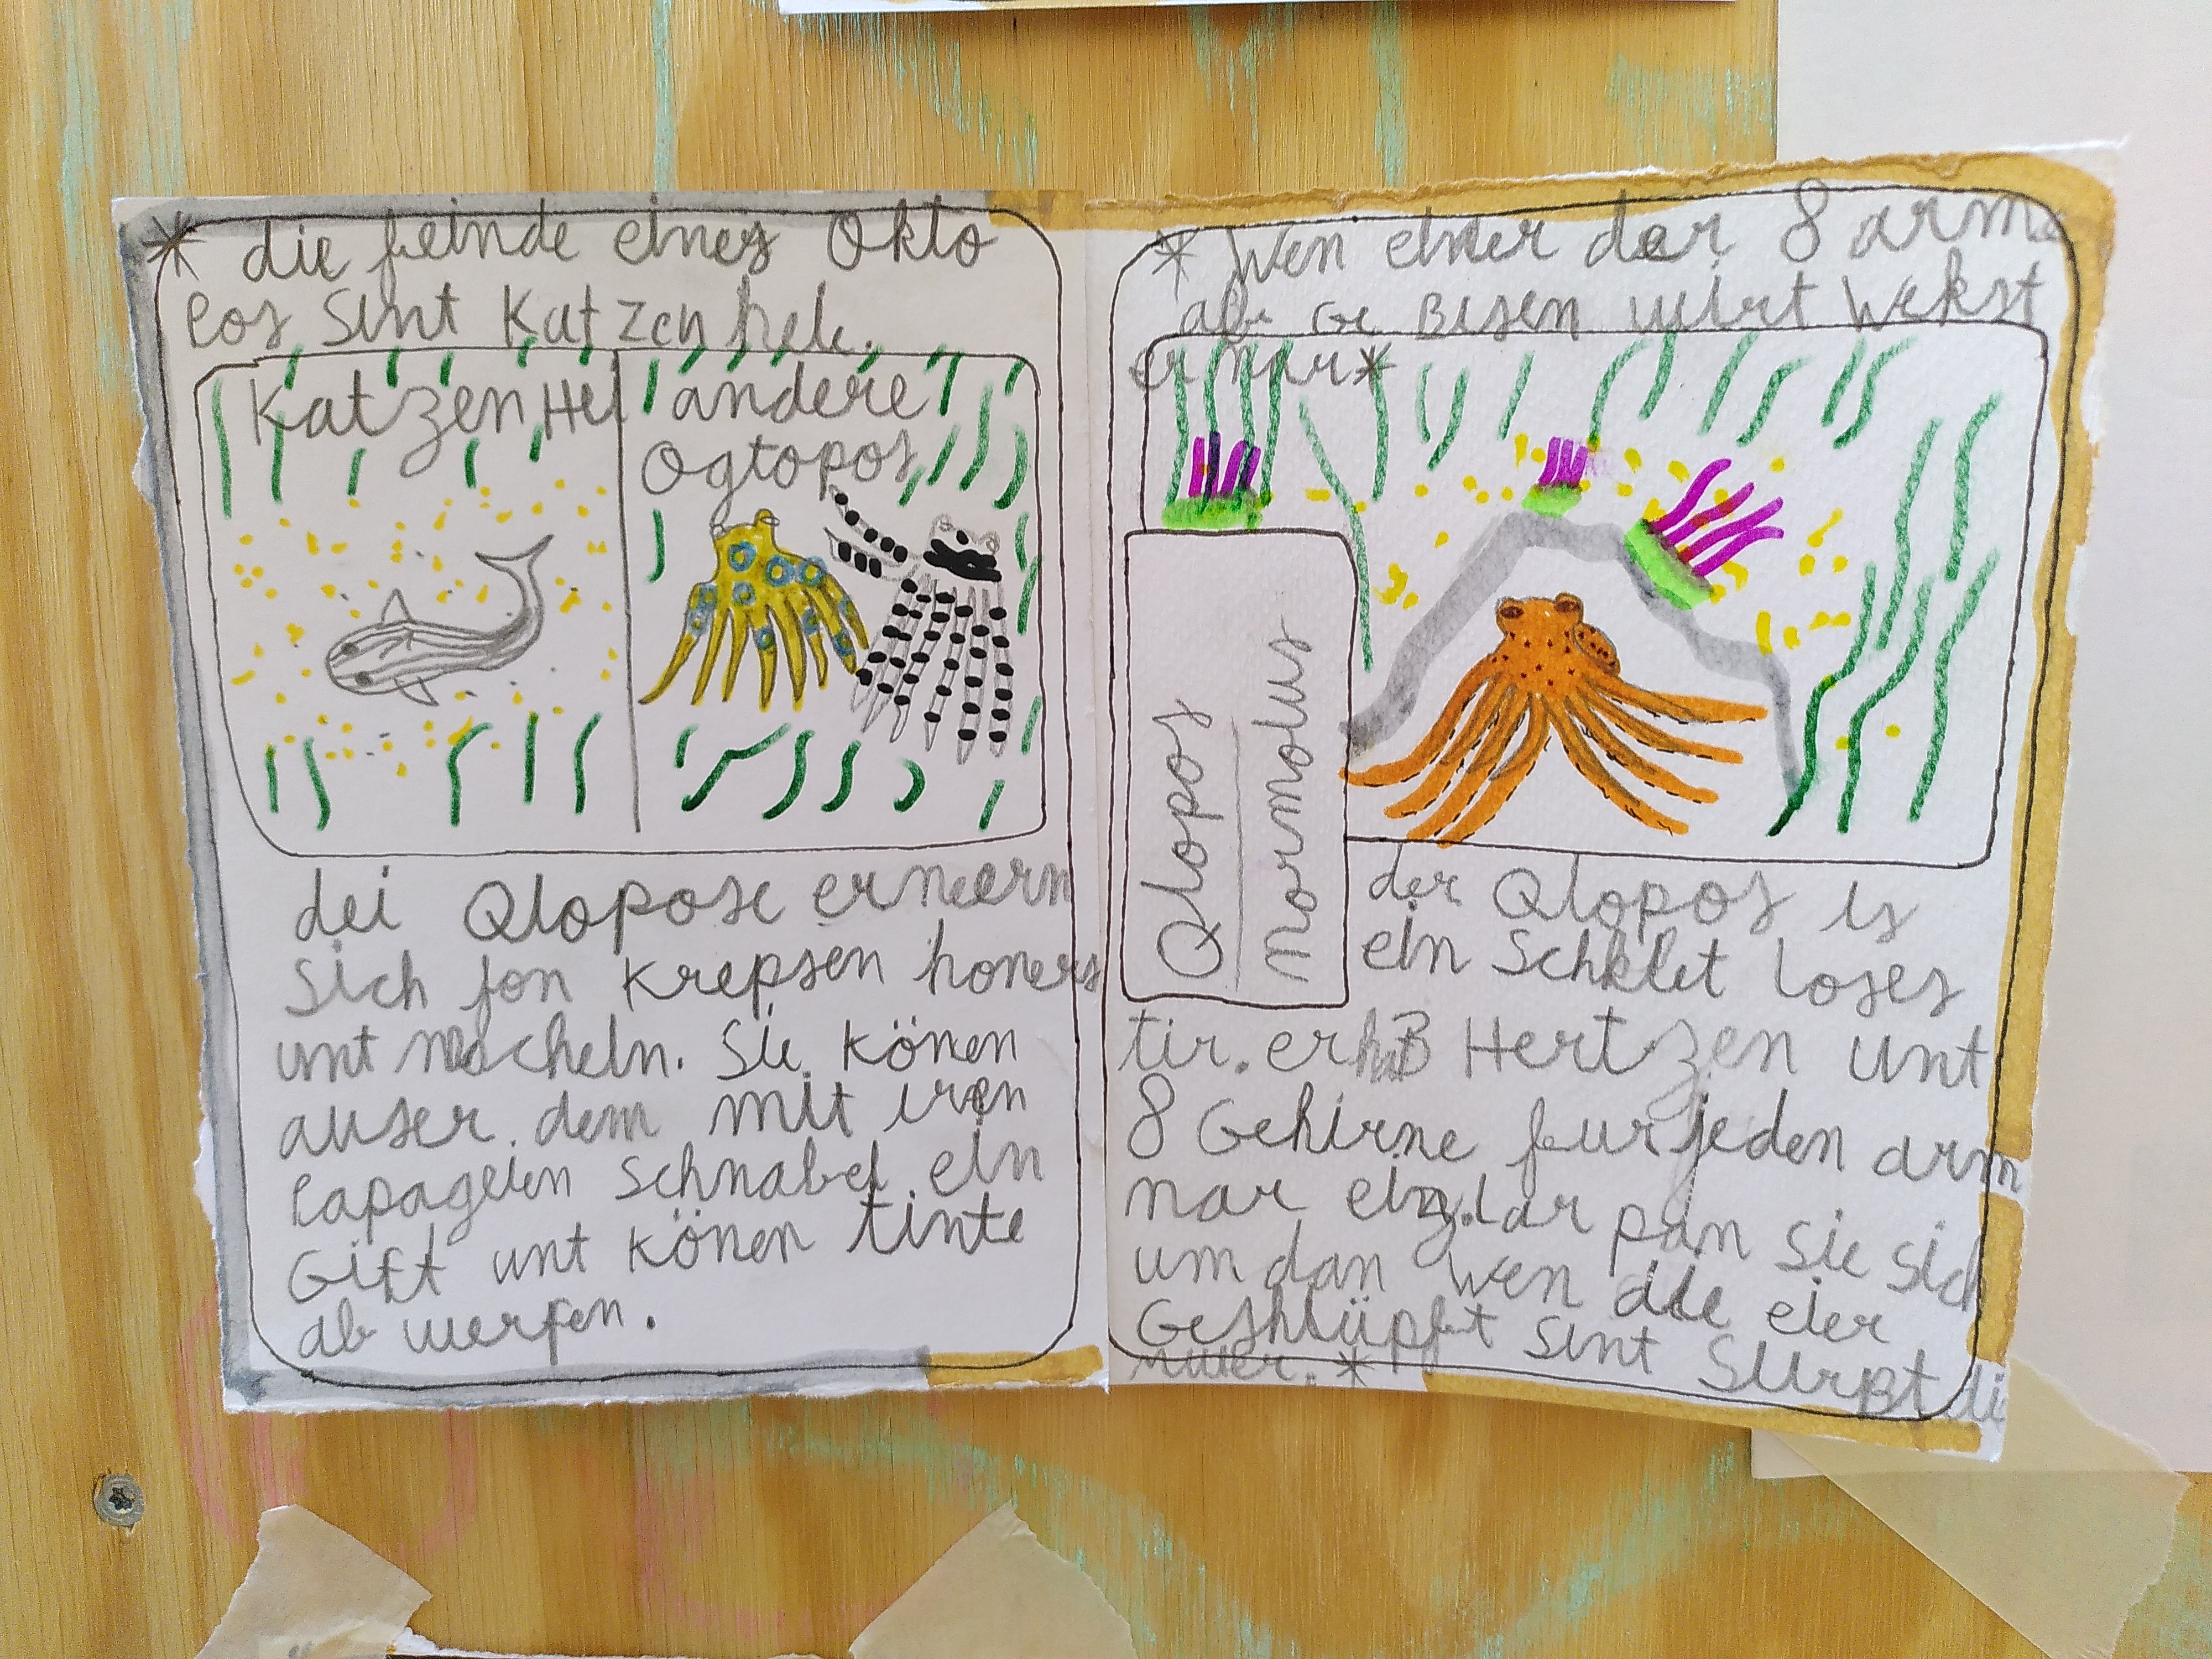 * die feinde eines Okto
pos sint Katzenheie.
KatzenHei
andere
Ogtopos
dei Qtopose erneern
sich fon krepsen honers
unt mocheln. Sie könen
auser dem mit iren
Papageien schnabel ein
Gift unt könen tinte
ab werfen.
* Wen einer der 8 arme
abe Ge Bisen wirt Wekst
er nar*
Qtopos
normolus
der Qtopos is
ein Schklet loses
tir. er hat 3 Hertzen unt
8 Gehirne fur jeden arm
nar einz. par pan sie sich
um dan wen die eier
Geshlüpft sint Stirpt di
muter. *